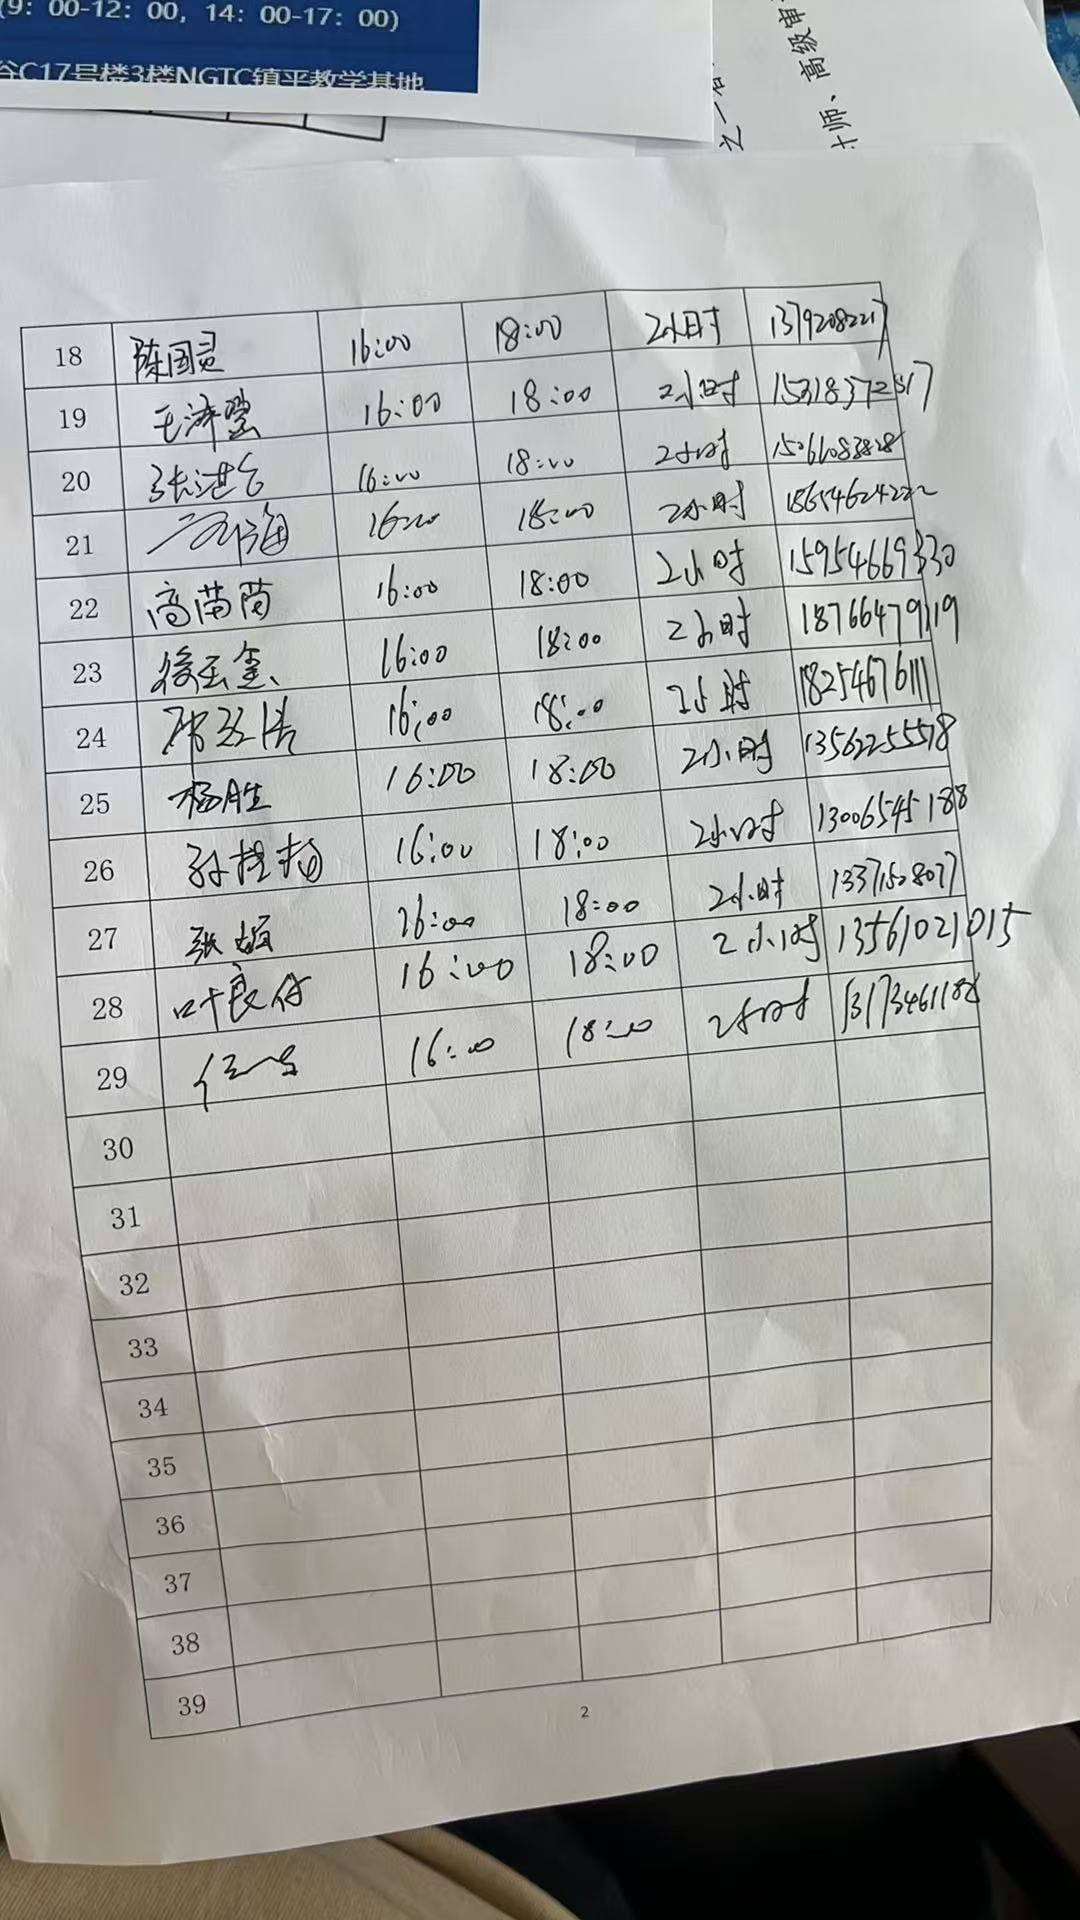 (9：00-12：00，14：00-17：00)
谷C17号楼3楼NGTC镇平教学基地
之一
师、高级审
18 陈国灵 16:00 18:00 2小时
19 王泽 16:00 18:00 2小时
20 张进 16:00 18:00 2小时
21 海 16:00 18:00 2小时 18654624222
22 高苗苗 16:00 18:00 2小时 15954669330
23 徐玉金 16:00 18:00 2小时 18766479119
24 16:00 18:00 2小时 18254676111
25 杨胜 16:00 18:00 2小时
26 孙 16:00 18:00 2小时 13006545188
27 张娟 16:00 18:00 2小时 13371528077
28 叶良 16:00 18:00 2小时 13561021015
29 16:00 18:00 2小时 13173461188
30
31
32
33
34
35
36
37
38
39
2